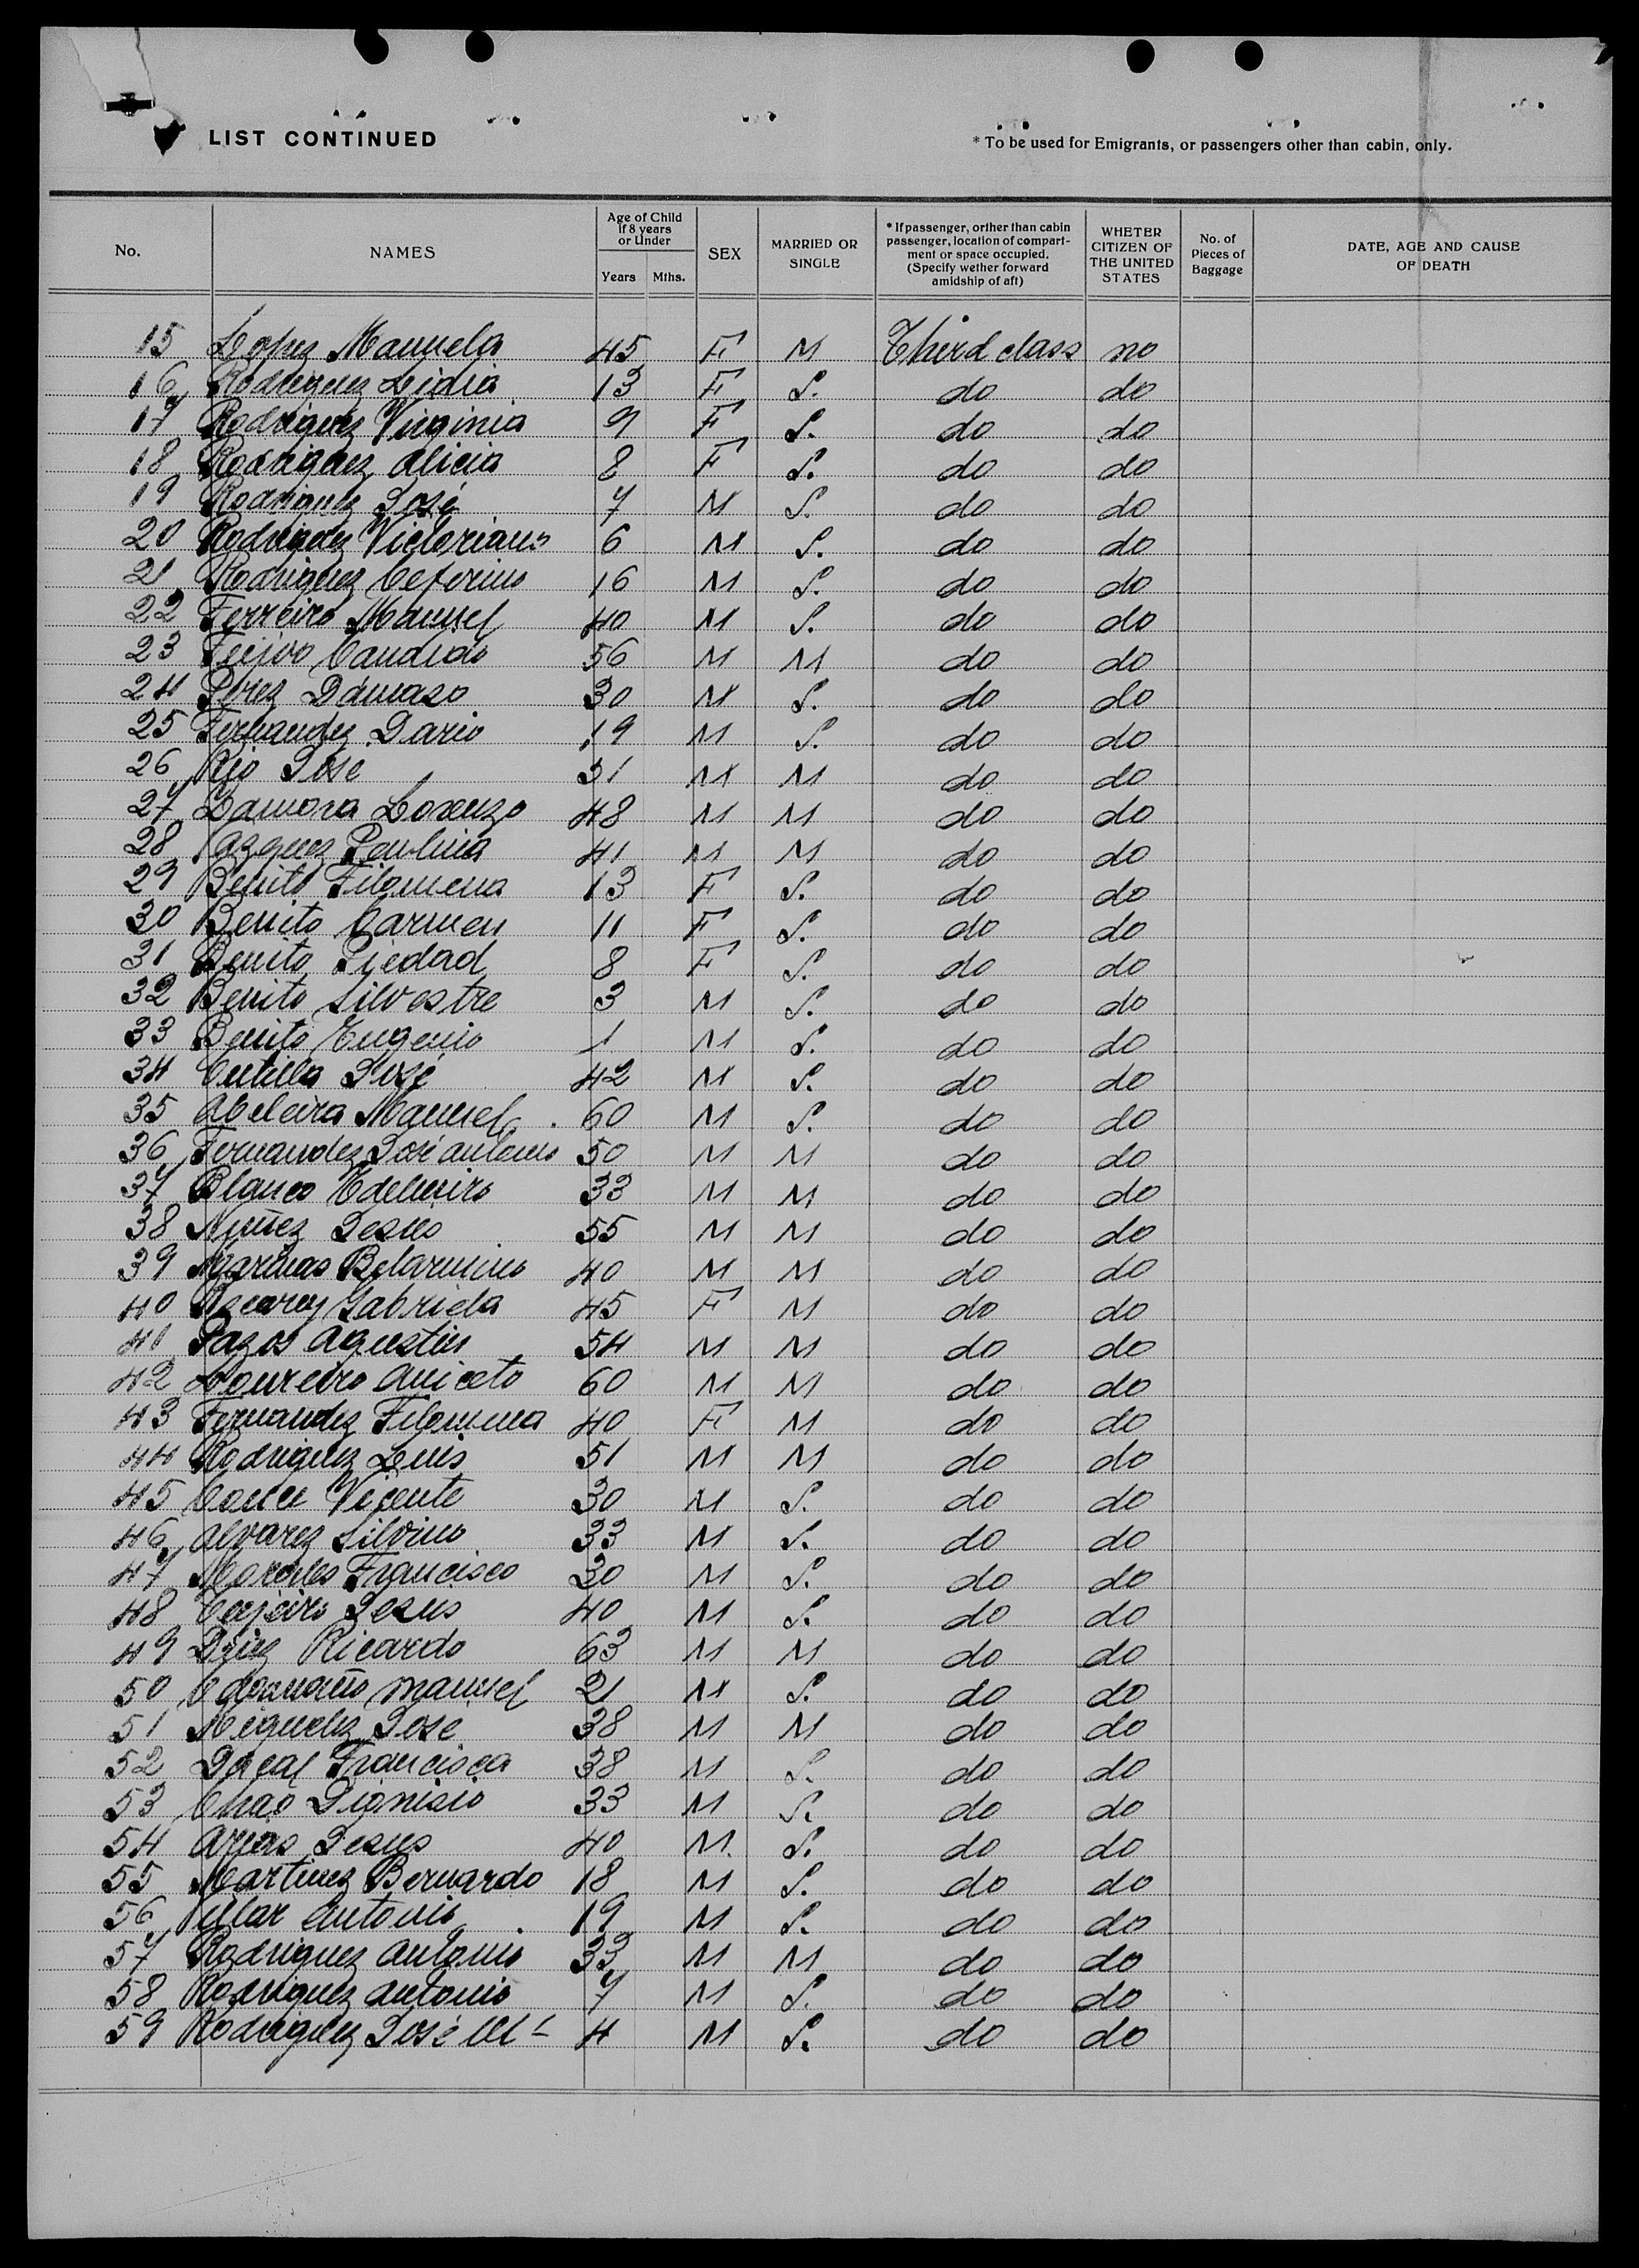 LIST CONTINUED
* To be used for Emigrants, or passengers other than cabin, only.
No. NAMES Age of Child if 8 years or Under Years Mths. SEX MARRIED OR SINGLE * If passenger, orther than cabin passenger, location of compartment or space occupied. (Specify wether forward amidship of aft) WHETER CITIZEN OF THE UNITED STATES No. of Pieces of Baggage DATE, AGE AND CAUSE OF DEATH
15 Lopez Manuela 45 F M Third class no
16 Rodriguez Lidia 13 F S. do do
17 Rodriguez Virginia 9 F S. do do
18 Rodriguez Alicia 8 F S. do do
19 Rodriguez José 7 M S. do do
20 Rodriguez Victoriano 6 M S. do do
21 Rodriguez Ceferino 16 M S. do do
22 Ferreiro Manuel 40 M S. do do
23 Feijoo Candido 56 M M do do
24 Perez Damaso 30 M S. do do
25 Fernandez Dario 19 M S. do do
26 José 31 M M do do
27 Zamora Lorenzo 48 M M do do
28 Vazquez Paulina 41 M M do do
29 Benito Filomena 13 F S. do do
30 Benito Carmen 11 F S. do do
31 Benito Piedad 8 F S. do do
32 Benito Silvestre 3 M S. do do
33 Benito Eugenio 1 M S. do do
34 José 42 M S. do do
35 Abeleira Manuel 60 M S. do do
36 Fernandez José Antonio 50 M M do do
37 Blanco Edelmiro 33 M M do do
38 Nuñez Jesus 55 M M do do
39 Marinas Belarmino 40 M M do do
40 Gabriela 45 F M do do
41 Pazos Agustin 54 M M do do
42 Loureiro Aniceto 60 M M do do
43 Fernandez Filomena 40 F M do do
44 Rodriguez Luis 51 M M do do
45 Vicente 30 M S. do do
46 Alvarez Silvino 33 M S. do do
47 Morales Francisco 30 M S. do do
48 Jesus 40 M S. do do
49 Diez Ricardo 63 M M do do
50 Manuel 21 M S. do do
51 Miguelez José 38 M M do do
52 Docal Francisca 38 M S. do do
53 Chao Dionisio 33 M S. do do
54 Arias Jesus 40 M S. do do
55 Martinez Bernardo 18 M S. do do
56 Villar Antonio 19 M S. do do
57 Rodriguez Antonio 33 M M do do
58 Rodriguez Antonio 7 M S. do do
59 Rodriguez José Mª 4 M S. do do